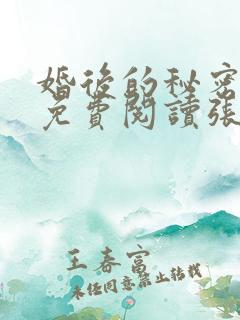 婚後的秘密
免費閱讀張
王春富
未經同意禁止轉載